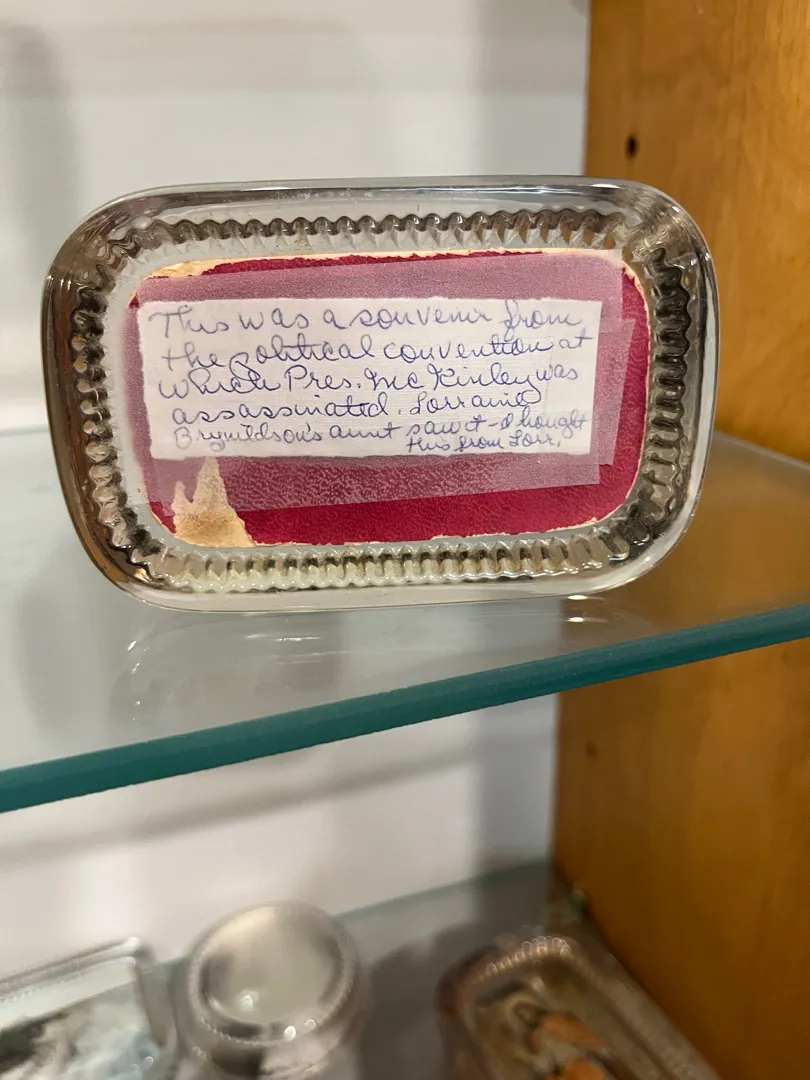 This was a souvenir from
the political convention at
which Pres. McKinley was
assassinated. Lorraine
Brynildson's aunt saw it - I bought
this from Lorr.